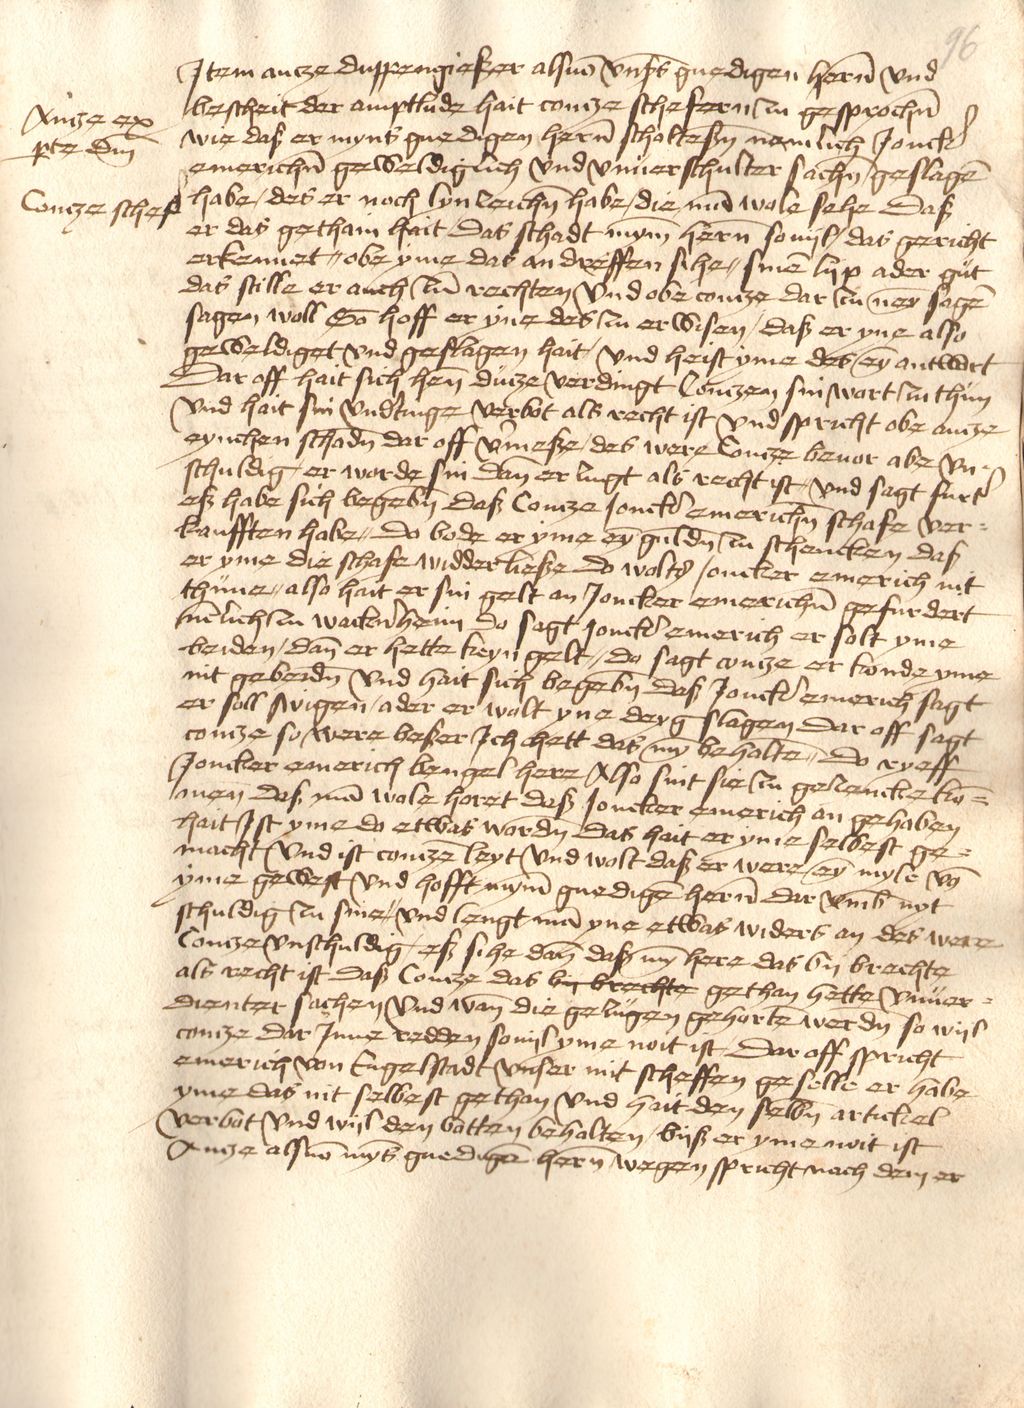 96
Item ancze duppengießer alsuō vnßs gnedigen hern̄ vnd
bescheit der amptlude hait concze schefern zu gesprochn̄
Ancze ex
pte dm̄
wie daß er myns gnedigen hern̄ scholteßn nemlich Jonckr̄
emerichn̄ geweldiglich vnd vnuerschulter sachn̄ geslagē
Concze schef
habe des er noch zynzeichn̄ habe die mā wole sehe Daß
er das gethain hait Das schadt mym̄ hern somyl das gericht
erkennet obe yme das andreffen sihe sinē lijp ader gūt
das stille er auch zū rechten Vnd obe concze dar zu ney sagē
sagen woll So hoff er yne des zu erwisen daß er yne also
geweldiget vnd geslagen hait vnd heist yme des ey antwort
Dar off hait sich hen̄ ducze verdingt Conczen sin wort zu thun
vnd hait sin vndtinge verbot als recht ist vnd spricht obe ancze
eynchen schadn̄ dar off vmeße des were Concze beuor abe vn
schuldig er worde sin dan er zugt als recht ist vnd sagt furtr̄
eß habe sich begebn̄ daß Concze Jonckr̄ emerichn̄ schafe ver=
kaufften habe do bode er yme eȳ guldn̄ zu schencken daß
er yme die schafe widderließe do wolts Joncker emerich nit
thune also hait er sin gelt an Joncker emerichn̄ gefurdert
nēlich zu wackr̄nheim do sagt Jonckr̄ emerich er solt yme
beiden dan̄ er hette keyn gelt do sagt concze er konde yme
nit gebeidn̄ vnd hait sich begebn̄ daß Jonckr̄ emerich sagt
er soll swigen ader er wolt yne deyg slagen Dar off sagt
concze so were beßer Ich hett das mȳ behaltē Do ryeff
Joncker emerich bengel here Also sint sie zu gezencke kō=
men daß mā wole horet daß Joncker emerich an gehaben
hait Ist yme do etwas wordn̄ das hait er yme selbest ge=
macht Vnd ist concze leyt vnd wolt daß er were eȳ myle vō
yme gewest vnd hofft mym̄ gnedigē hern̄ dar vmb nyt
schuldig zu sine vnd lengt mā yne etwas widers an des were
Concze vnschuldig eß sihe dan̄ daß mȳ here das bij brechte
als recht ist daß Concze das bij brechte gethan hette vnuer=
dienter sachen vnd wan̄ die gezugen gehorte werdn̄ so wijl
concze dar Inne redden somyl yme noit ist Dar off spricht
emerich von Engelstadt vnser mit scheffen geselle er habe
yme das nit selbest gethan vnd hait den selbn̄ artickel
verbot vnd wijl den vatten behalten biß er yme noit ist
Ancze alsuō myns gnedigē hern̄ wegen spricht nach dem er